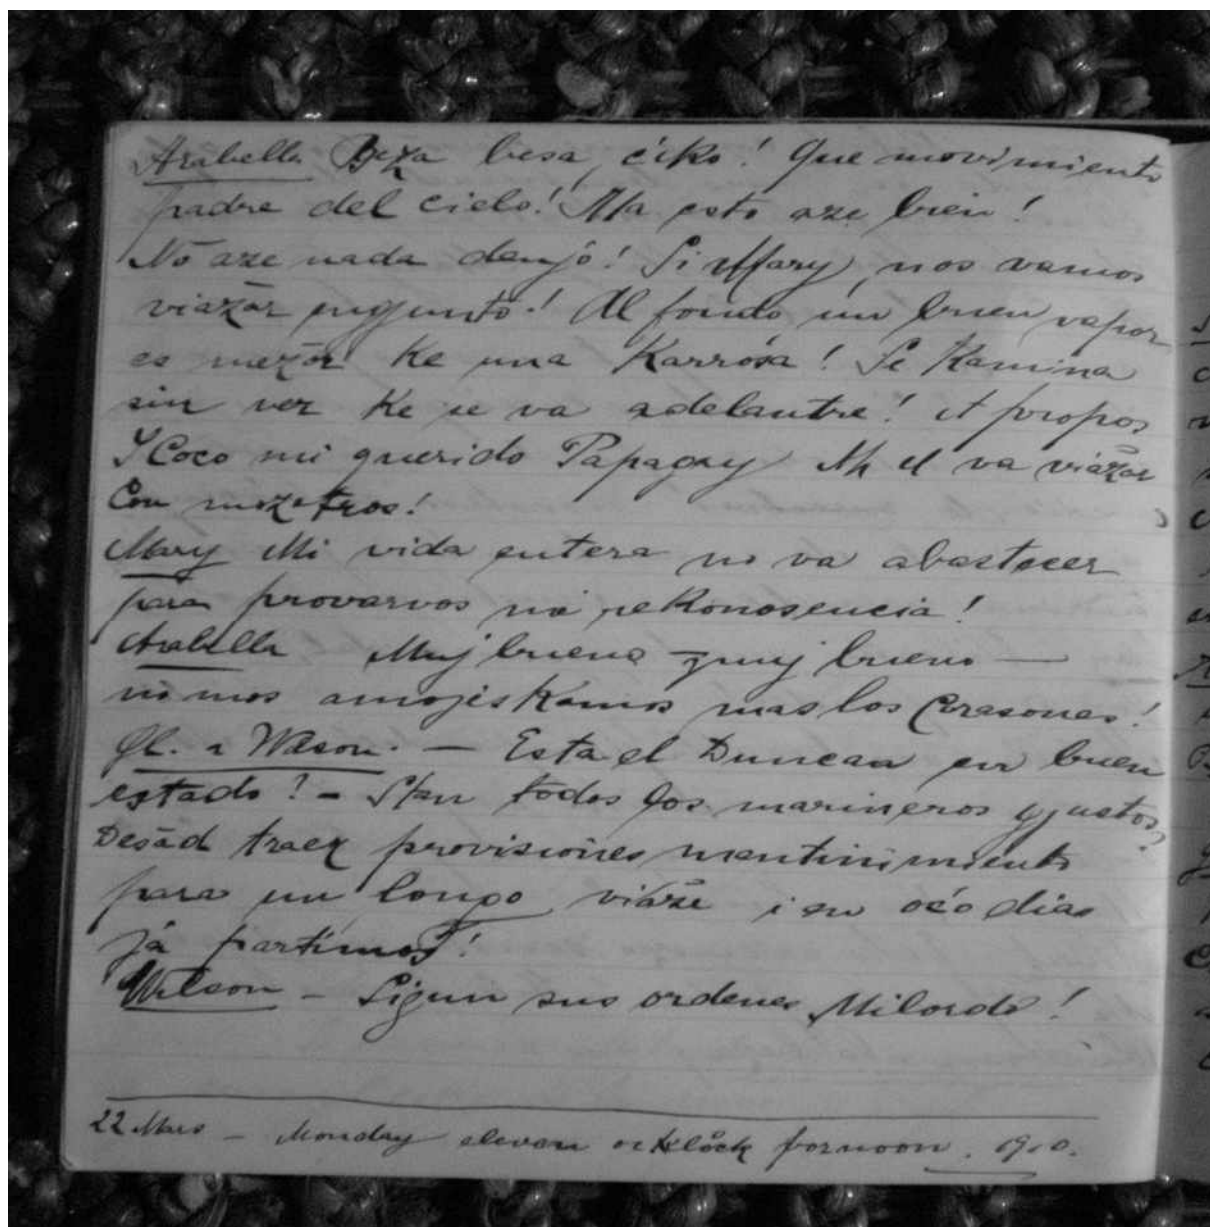 Arabella Beza besa, ćiko! Que movimiento
padre del cielo! Ma esto aze bien!
No aze nada danjo! Si Mary, nos vamos
viažar enjunto! Al fondo un buen vapor
es mežor ke una Karrósa! Se Kamina
sin ver ke se va adelantre! A propos
I Coco mi querido Papagay Ah el va viažar
Con mozotros!
Mary Mi vida entera no va abastecer
para provarvos mi rekonosencia!
Arabella Muj bueno muj bueno —
no mos amojiskamos mas los Corasones!
Gl. a Wilson. — Esta el Duncan en buen
estado? – Stan todos los marineros ajustos?
Desád traer provisiones mantinimiento
para un longo viaže i en oćo dias
já partimos!
Wilson – Sigun sus ordenes Milordo!
22 Mars – Monday eleven orklock fornoon.